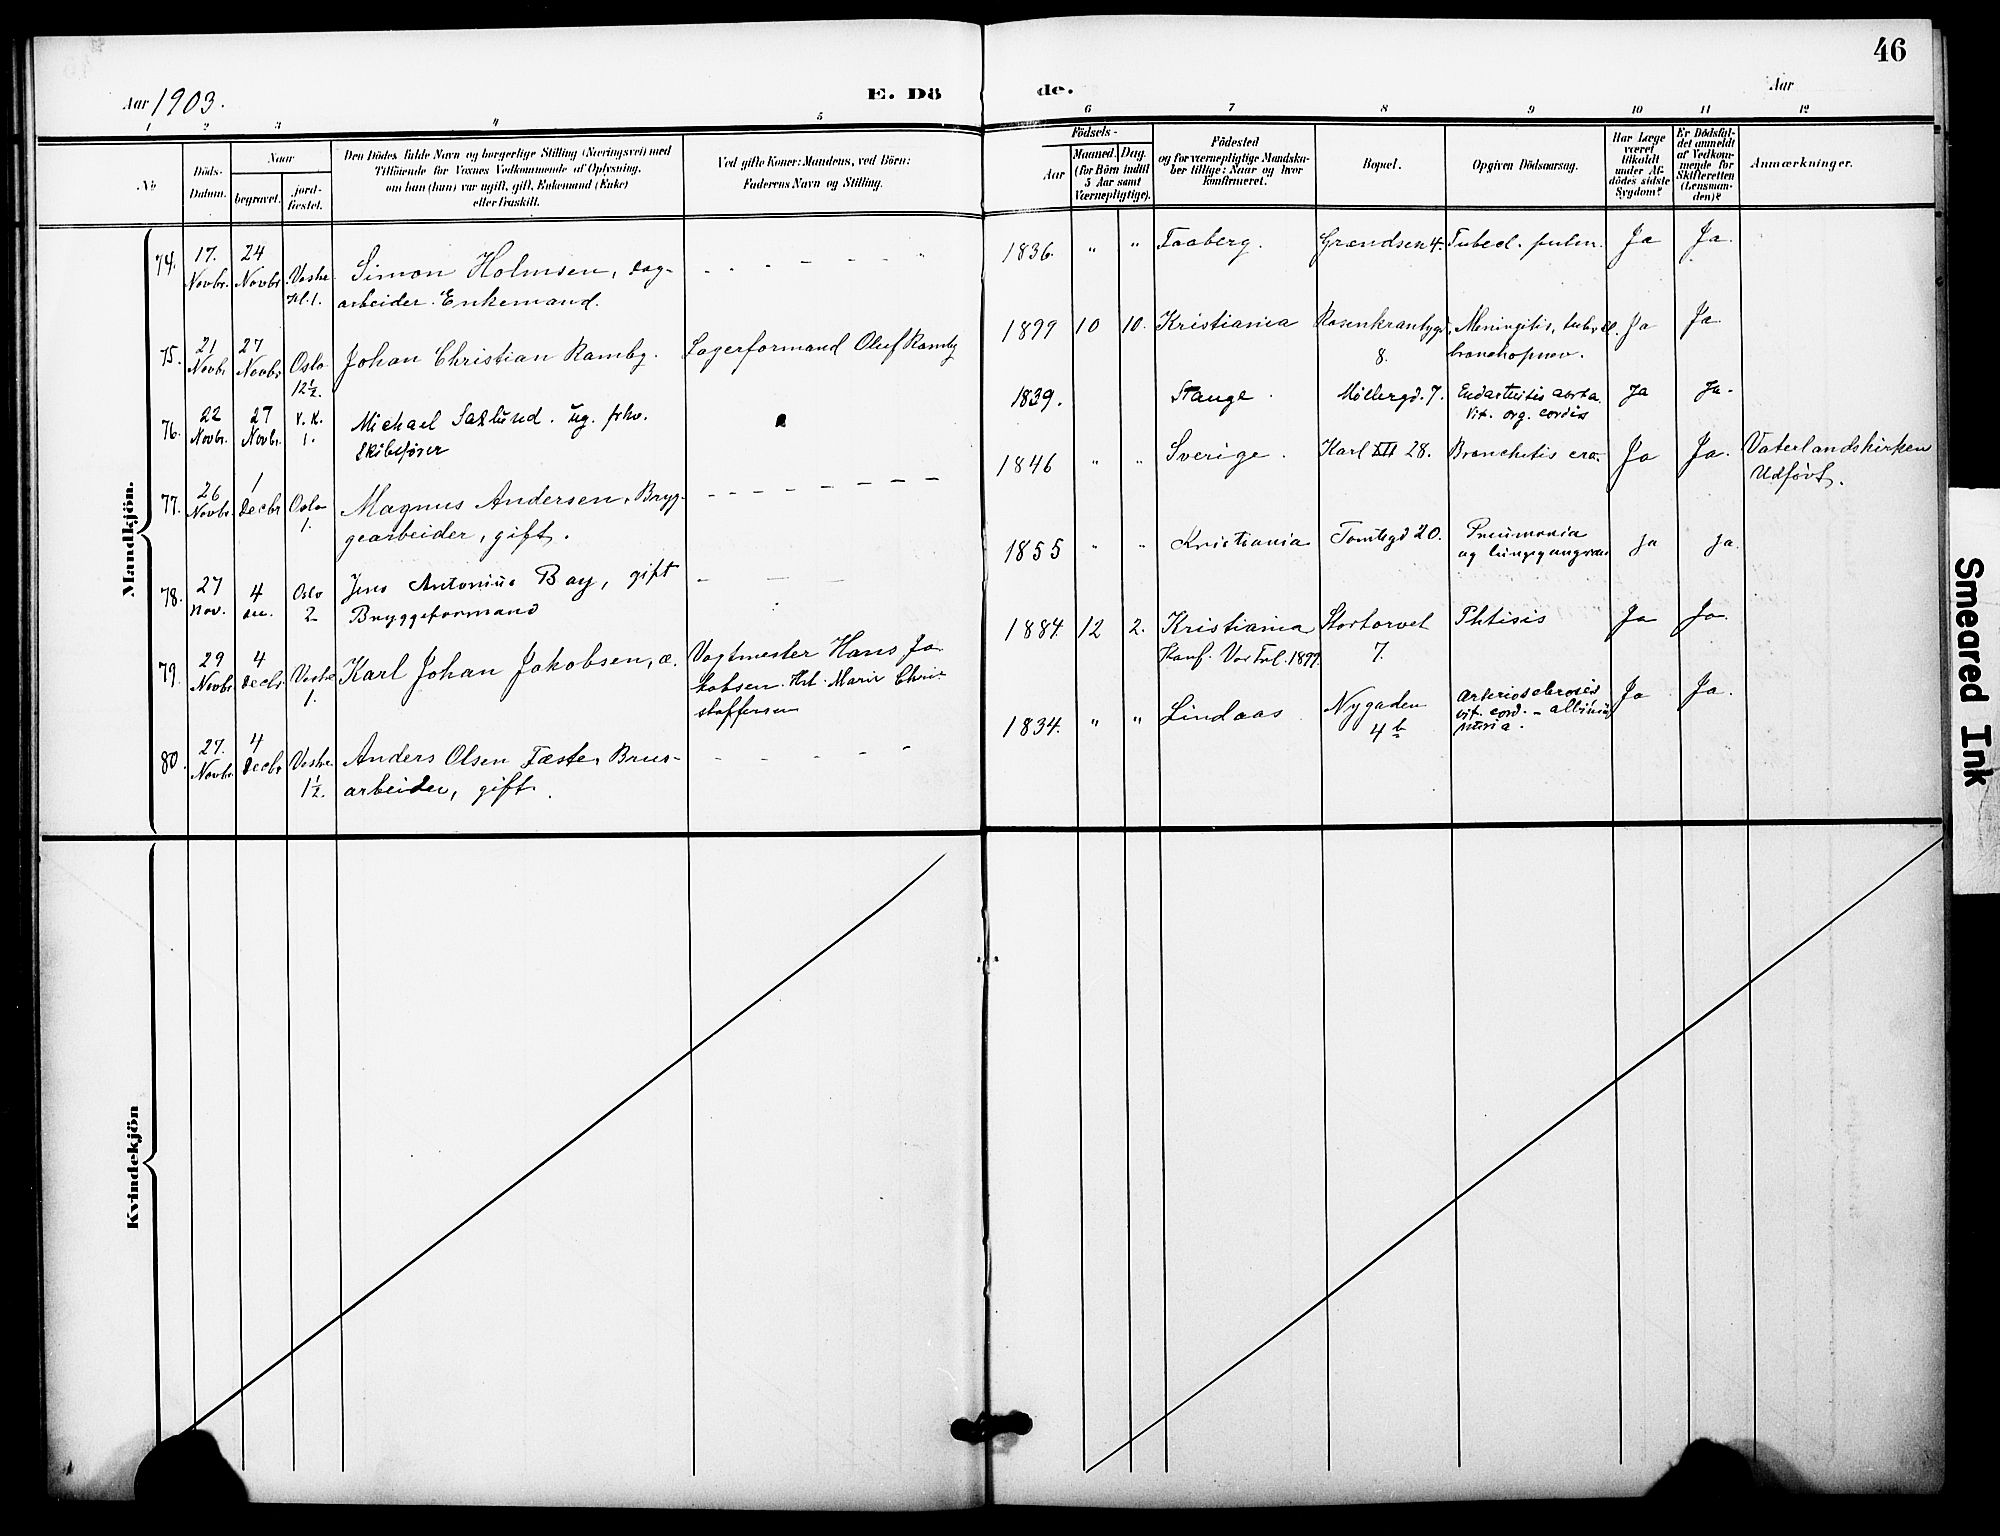 46
Aar 1903.
E. Dö
de.
Aar
1 2 3 4 5
6 7 8 9 10 11 12
No
Döds-
Datum.
Naar
begravet.
jord-
fæstet.
Den Dödes fulde Navn og borgerlige Stilling (Næringsvei) med
Tilföiende for Voxnes Vedkommende af Oplysning,
om han (hun) var ugift, gift, Enkemand (Enke)
eller fraskilt.
Ved gifte Koner: Mandens, ved Börn:
Faderens Navn og Stilling.
Födsels-
Aar
Maaned. Dag.
(for Börn indtil
5 Aar samt
Værnepligtige).
Födested
og for værnepligtige Mandska-
ber tillige: Naar og hvor
konfirmeret.
Bopæl.
Opgiven Dödsaarsag.
Har Læge
været
tilkaldt
under Af-
dödes sidste
Sygdom?
Er Dödsfal-
det anmeldt
af Vedkom-
mende for
Skifteretten
(Lensman-
den)?
Anmærkninger.
Mandkjön.
74. 17. Novbr. 24 Novbr. Vestre kl. 1. Simon Holmsen, dag-
arbeider. Enkemand.
1836. " " Faaberg. Grændsen 4. Tubecl. pulm. Ja Ja.
75. 21 Novbr 27 Novbr Oslo 12½. Johan Christian Ramby. Lagerformand Oluf Ramby
1899 10 10. Kristiania Rosenkrantzgd. 8. Meningitis, tub.
bronchopnev. Ja Ja
76. 22 Novbr. 27 Novbr. V. K. 1. Michael Saxlund. ug. frhv.
Skibsfører
1839. Stange. Møllergd. 7. Endarteritis aorta
Vit. org. cordis Ja Ja.
77. 26 Novbr. 1 Decbr Oslo 1. Magnus Andersen, Bryg-
gearbeider, gift.
1846 " " Sverige. Karl XII 28. Bronchitis cro. Ja Ja. Vaterlandskirken
Udført.
78. 27 Nov. 4 Oslo 2 Jens Antonius Bay, gift
Bryggeformand
1855 " " Kristiania Tomtegd 20. Pneumonia
og lungegangræn Ja Ja.
79. 29 Novbr. 4 Decbr. Vestre 1. Karl Johan Jakobsen, æ. Vagtmester Hans Ja-
kobsen. Hst. Marie Chri-
stoffersen
1884. 12 2. Kristiania
Konf. Vor Frl. 1899. Stortorvet 7. Phtisis Ja Ja.
80. 27. Novbr. 4 Decbr Vestre 1½. Anders Olsen Fæste, Brus-
arbeider, gift.
1834. " " Lindaas Nygaden 4 b Arteriosclerosis
vit. cord. - albumi
nuria. Ja Ja.
Kvindekjön
Smeared Ink